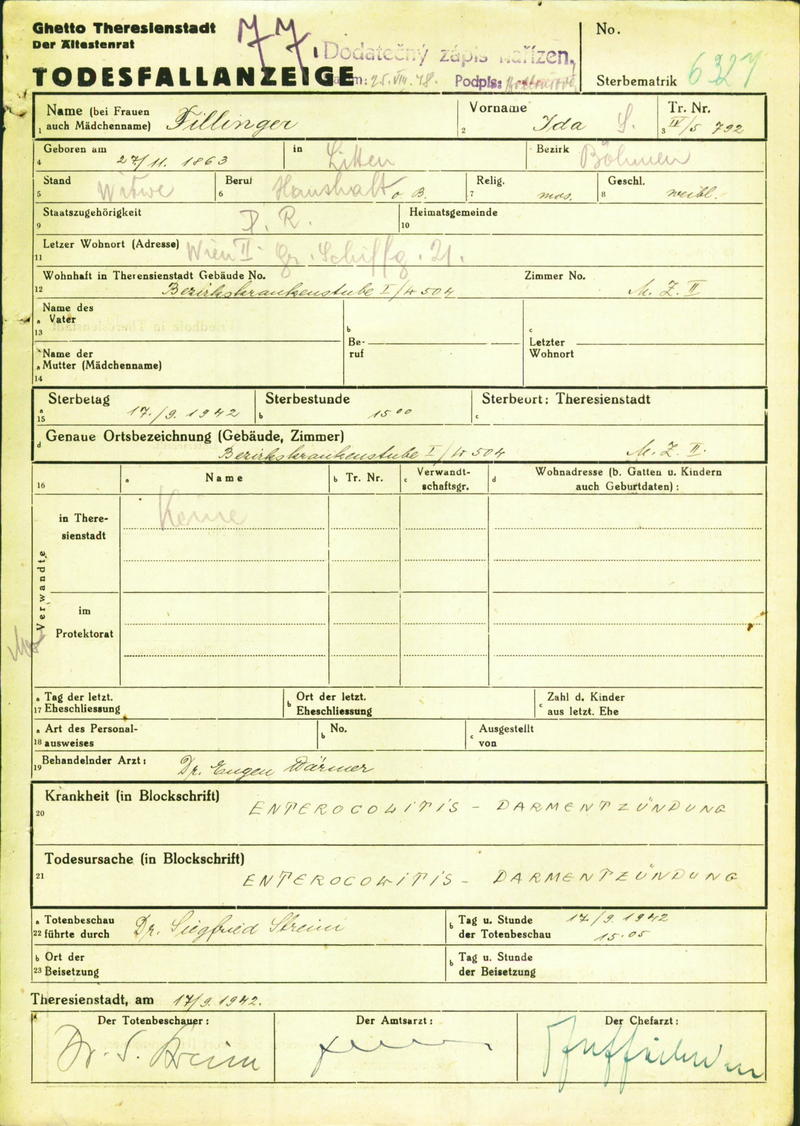 Ghetto Theresienstadt
Der Ältestenrat
TODESFALLANZEIGE
77.
Dodatečný zápis nařízen,
25.VIII.48. Podpis:
No.
Sterbematrik 6327
Name (bei Frauen auch Mädchenname) 1 Fillinger
Vorname 2 Ida S.
Tr. Nr. 3 IV/5 792
Geboren am 4 27/11. 1863 in Litten Bezirk Böhmen
Stand 5 Witwe Beruf 6 Haushalt o. B. Relig. 7 mos. Geschl. 8 weibl.
Staatszugehörigkeit 9 D. R. Heimatsgemeinde 10
Letzer Wohnort (Adresse) 11 Wien II. Gr. Schiffg. 21.
Wohnhaft in Theresienstadt Gebäude No. 12 Bezirkskrankenstube I/4 504 Zimmer No. M. Z. II
Name des
a Vater
13
b Beruf
c Letzter Wohnort
Name der
a Mutter (Mädchenname)
14
Sterbetag a 15 17./9. 1942 Sterbestunde b 15 00 Sterbeort: Theresienstadt c
d Genaue Ortsbezeichnung (Gebäude, Zimmer)
Bezirkskrankenstube I/4 504 M. Z. II.
16 a Name b Tr. Nr. c Verwandtschaftsgr. d Wohnadresse (b. Gatten u. Kindern auch Geburtdaten):
Verwandte
in Theresienstadt Keine
im Protektorat
a Tag der letzt. 17 Eheschliessung b Ort der letzt. Eheschliessung c Zahl d. Kinder aus letzt. Ehe
a Art des Personal- 18 ausweises b No. c Ausgestellt von
19 Behandelnder Arzt: Dr. Eugen Wärmer
Krankheit (in Blockschrift)
20 ENTEROCOLITIS - DARMENTZÜNDUNG
Todesursache (in Blockschrift)
21 ENTEROCOLITIS - DARMENTZÜNDUNG
a Totenbeschau 22 führte durch Dr. Siegfried Streim b Tag u. Stunde der Totenbeschau 17/9. 1942 15.05
b Ort der 23 Beisetzung b Tag u. Stunde der Beisetzung
Theresienstadt, am 17/9. 1942.
Der Totenbeschauer: Der Amtsarzt: Der Chefarzt:
Dr. S. Streim